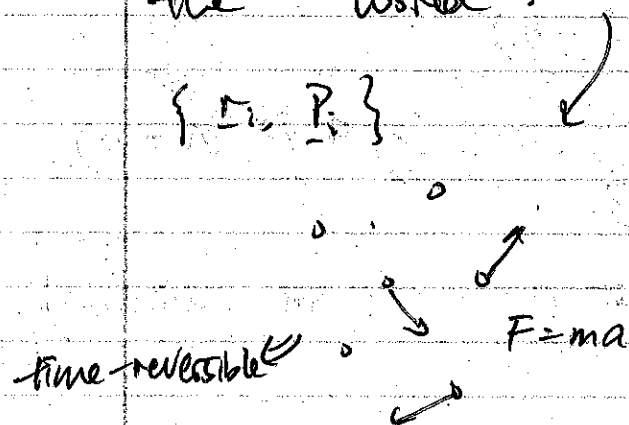 the world
{ r_i, P_i }
F=ma
time-reversible